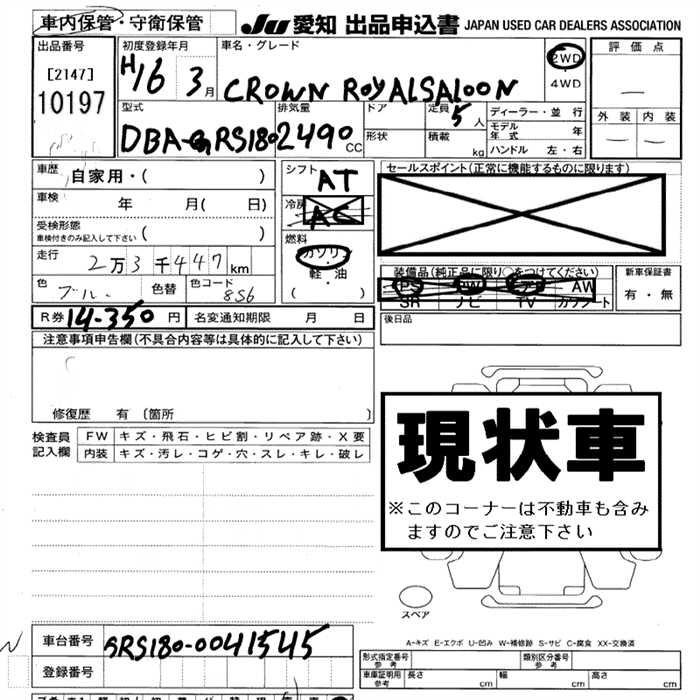 車内保管・守衛保管
JU 愛知 出品申込書 JAPAN USED CAR DEALERS ASSOCIATION
出品番号
[2147]
10197
初度登録年月
H16 3月
車名・グレード
CROWN ROYALSALOON
2WD
・
4WD
評価点
—
外装 内装
— —
型式
DBA-GRS180
排気量
2490 CC
ドア
形状
定員 5人
積載 kg
ディーラー・並行
モデル年式 年
ハンドル 左・右
車歴 自家用・( )
車検 年 月( 日)
受検形態
車検付きのみ記入して下さい ( )
走行 2万3千447km
色 ブルー 色替 色コード 8S6
シフト AT
冷房 AC
燃料
ガソリン
・
軽・油
( )
セールスポイント(正常に機能するものに限ります)
装備品(純正品に限り○をつけてください)
PS PW エアB AW
SR ナビ TV カワシート
新車保証書
有・無
R券 14-350円 名変通知期限 月 日
後日品
注意事項申告欄(不具合内容等は具体的に記入して下さい)
修復歴 有 〔箇所 〕
検査員記入欄
FW キズ・飛石・ヒビ割・リペア跡・X要
内装 キズ・汚レ・コゲ・穴・スレ・キレ・破レ
現状車
※このコーナーは不動車も含み
ますのでご注意下さい
スペア
A-キズ E-エクボ U-凹み W-補修跡 S-サビ C-腐食 XX-交換済
車台番号 GRS180-0041545
登録番号
形式指定番号
参考
類別区分番号
参考
車庫証明用
参考
長さ cm 幅 cm 高さ cm